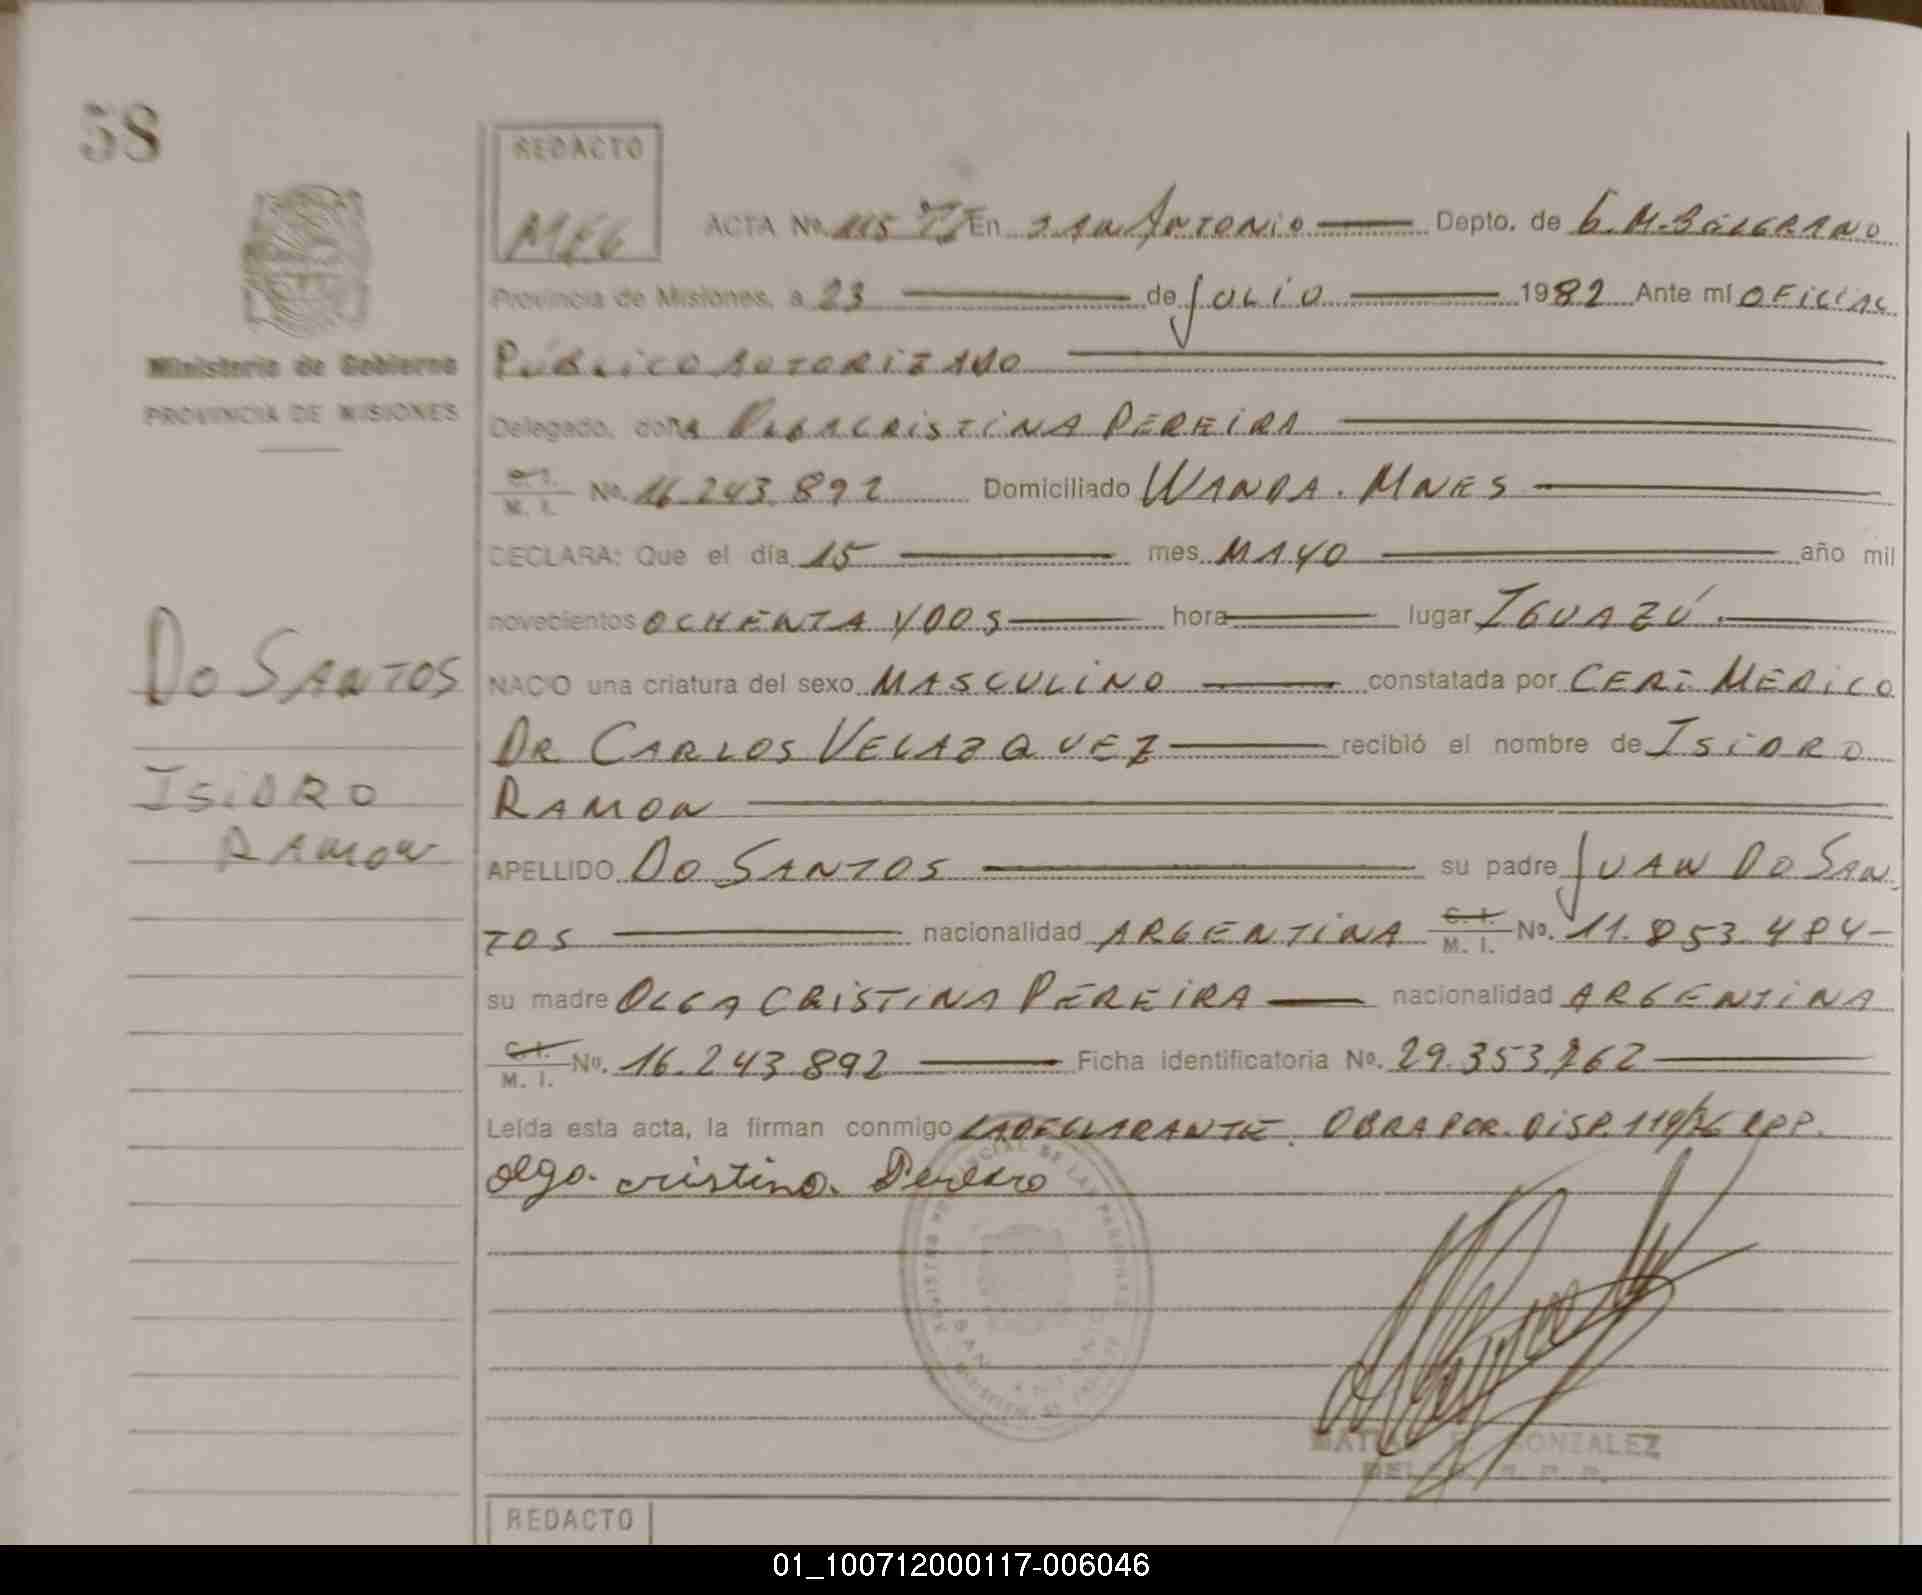 58
REDACTO
MEG
ACTA No. 115 En San Antonio Depto. de G. M. BELGRANO
Provincia de Misiones, a 23 de JULIO 1982 Ante mí OFICIAL
PÚBLICO AUTORIZADO
Ministerio de Gobierno
PROVINCIA DE MISIONES
Delegado, doña OLGA CRISTINA PEREIRA
C. I. M. I. No. 16.243.892 Domiciliado WANDA. MNES
DECLARA: Que el día 15 mes MAYO año mil
novecientos OCHENTA Y DOS hora lugar IGUAZÚ.
DO SANTOS
NACIO una criatura del sexo MASCULINO constatada por CERT MEDICO
DR CARLOS VELAZQUEZ recibió el nombre de ISIDRO
ISIDRO
RAMON
RAMON
APELLIDO DO SANTOS su padre JUAN DO SAN
TOS nacionalidad ARGENTINA C. I. M. I. No. 11.853.484
su madre OLGA CRISTINA PEREIRA nacionalidad ARGENTINA
C. I. M. I. No. 16.243.892 Ficha identificatoria No. 29.353.762
Leída esta acta, la firman conmigo LA DECLARANTE. OBRA POR. DISP. 119/76 RPP.
olga. cristina. Pereira
GONZALEZ
REDACTO
01_100712000117-006046